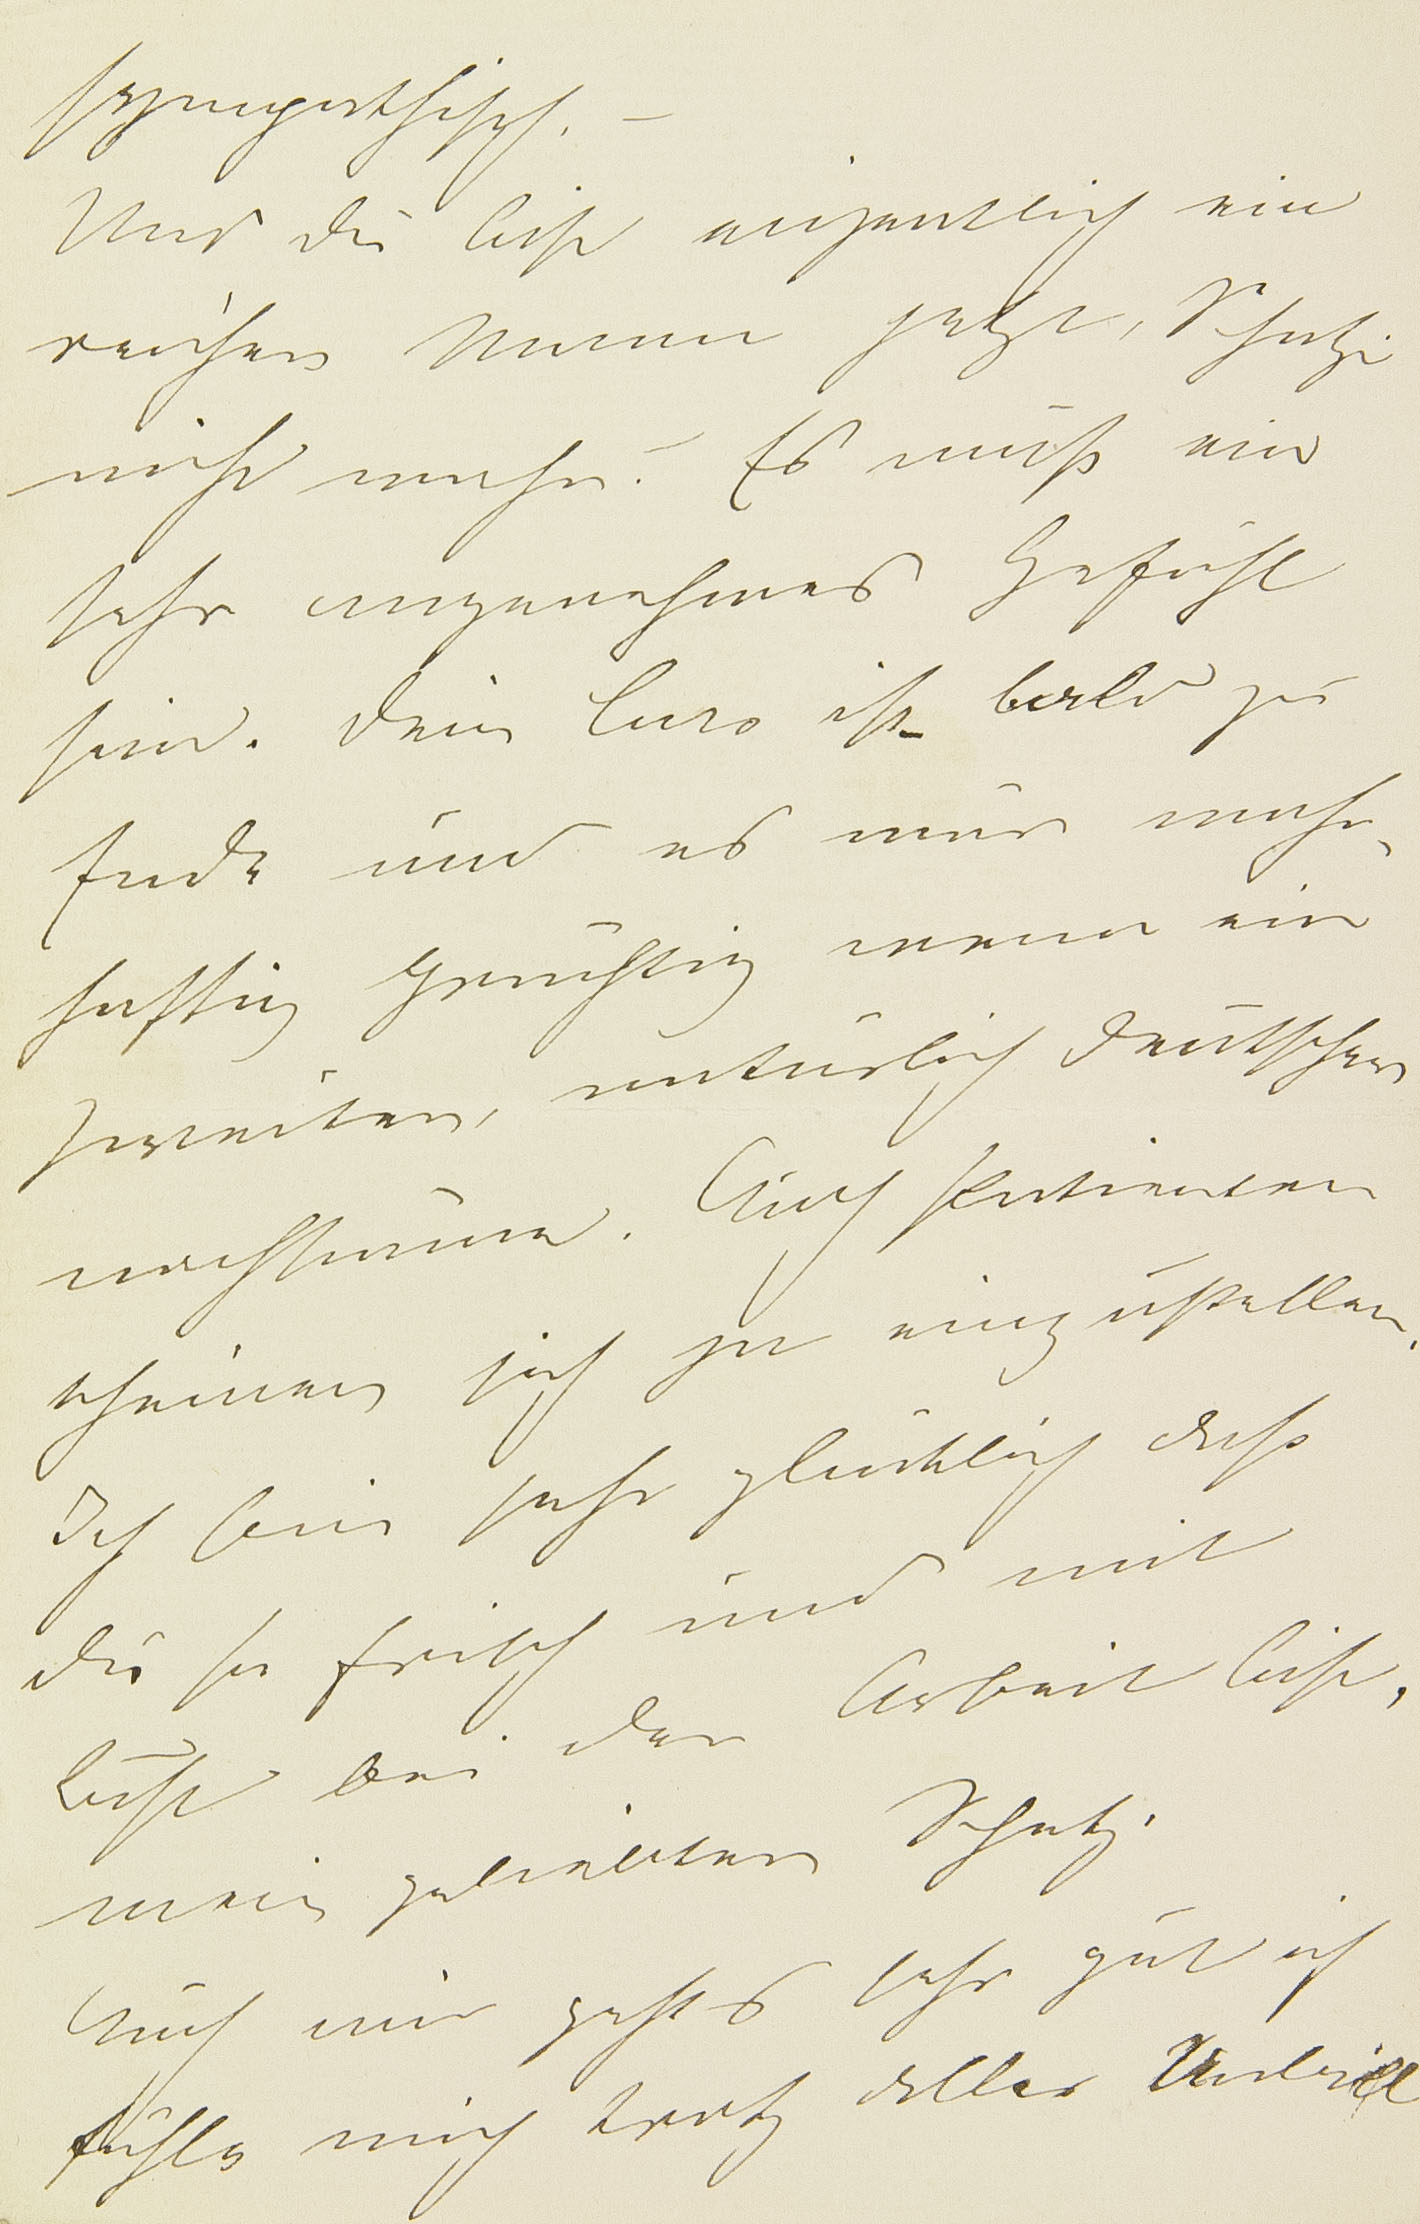 sympathisch. –
Und du bist eigentlich ein
reicher Mann jetzt, Schatzi
nicht wahr? Es muß ein
sehr angenehmes Gefühl
sein. Dein Curs ist bald zu
Ende und es war wahr-
haftig günstig wenn ein
zweiter, natürlich deutscher
nachkäme. Auch Patienten
scheinen sich ja einzustellen.
Ich bin sehr glücklich daß
du so frisch und mit
Lust bei der Arbeit bist,
mein geliebter Schatzi
Auch mir geht's sehr gut ich
fühle mich trotz aller